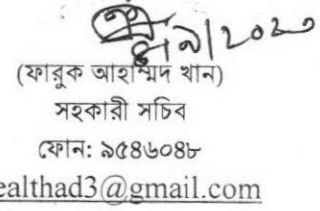 (ফারুক আহাম্মদ খান)
সহকারী সচিব
ফোন: ৯৫৪৬০৪৮
ealthad3@gmail.com